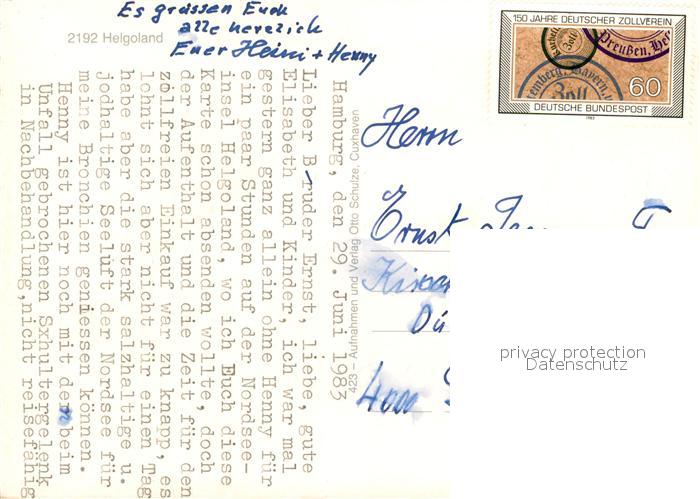 Es grüssen Euch
alle herzlich
Euer Heini + Henny
2192 Helgoland
150 JAHRE DEUTSCHER ZOLLVEREIN
Preußen.
60
DEUTSCHE BUNDESPOST
1983
Hamburg, den 29. Juni 1983
Lieber Bruder Ernst, liebe, gute
Elisabeth und Kinder, ich war mal
gestern ganz allein ohne Henny für
ein paar Stunden auf der Nordsee-
insel Helgoland, wo ich Euch diese
Karte schon absenden wollte, doch
der Aufenthalt und die Zeit für den
zollfreien Einkauf war zu knapp, es
lohnt sich aber nicht für einen Tag
habe aber die stark salzhaltige u.
jodhaltige Seelüft der Nordsee für
meine Bronchien geniessen können.
Henny ist hier noch mit dem beim
Unfall gebrochenen Sxhultergelenk
in Nachbehandlung, nicht reisefähig
423 – Aufnahmen und Verlag Otto Schulze, Cuxhaven
Herrn
Ernst
Dü
4000
privacy protection
Datenschutz